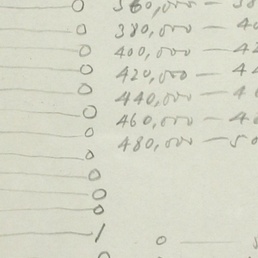 0 360,000 —
0 380,000 — 40
0 400,000 — 42
0 420,000 — 44
0 440,000 —
0 460,000 —
0 480,000 — 50
0
0
0
0
1
0 0 —